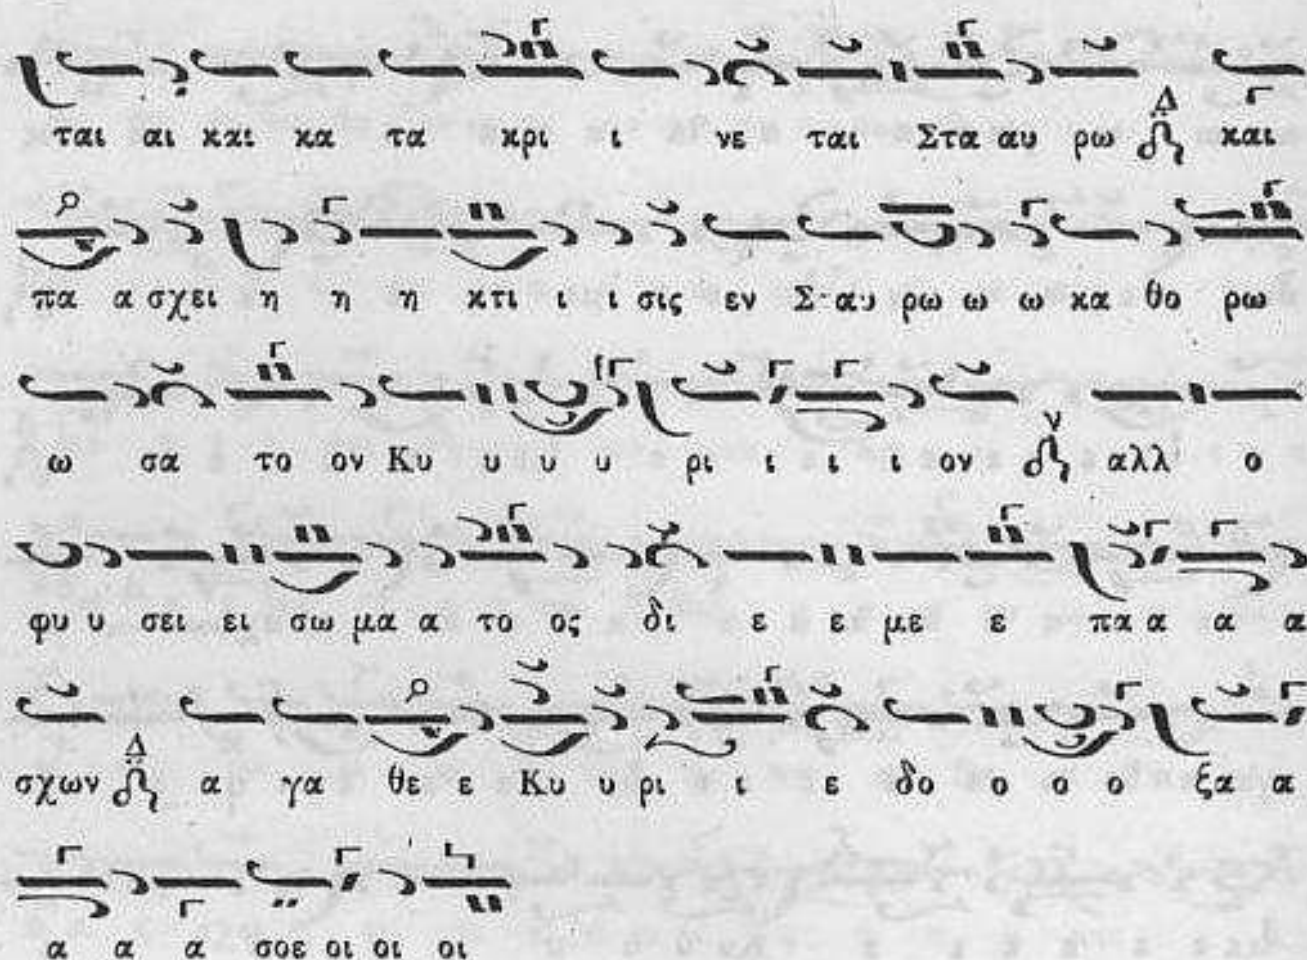 ται αι και κα τα κρι ι νε ται Στα αυ ρω Δ και
πα α σχει η η η κτι ι ι σις εν Σταυ ρω ω ω κα θο ρω
ω σα το ον Κυ υ υ υ ρι ι ι ι ον ν αλλ' ο
φυ υ σει ει σω μα α το ος δι ε ε με ε πα α α α
σχων Δ α γα θε ε Κυ υ ρι ι ε δο ο ο ο ξα α
α α α σοε οι οι οι